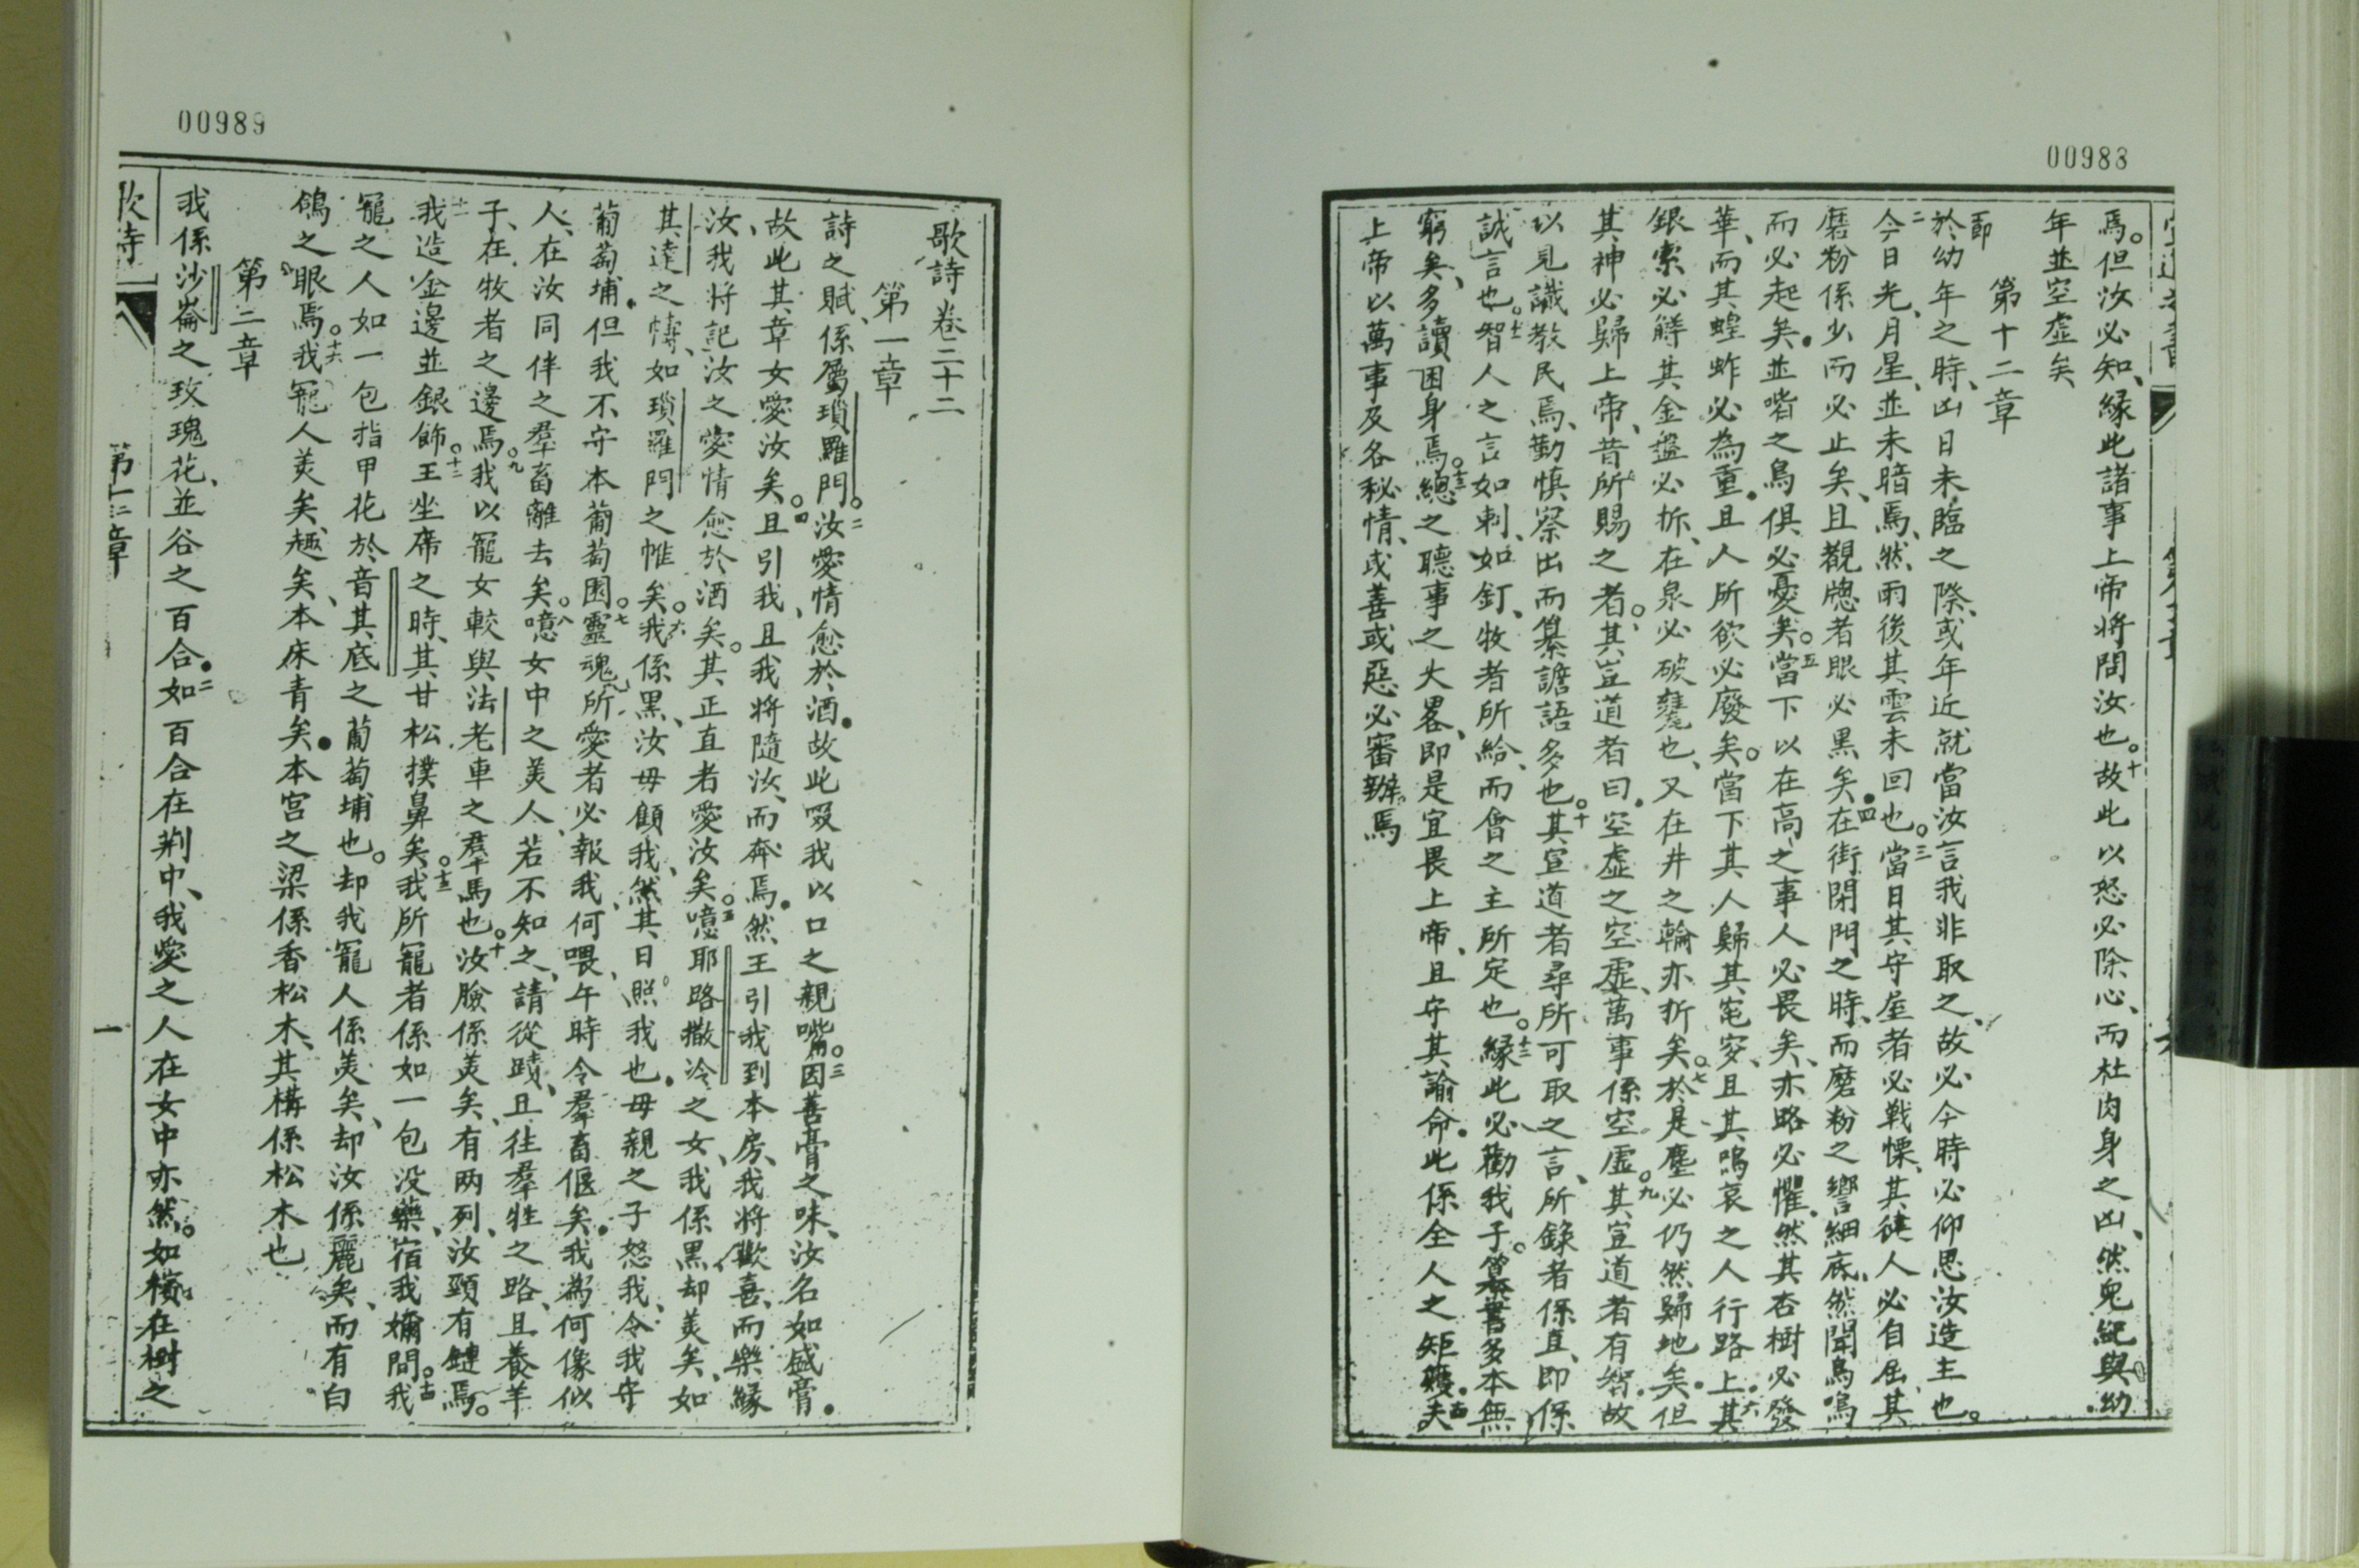 00988
焉。但汝必知、緣此諸事上帝將問汝也。十故此以怒必除心、而杜肉身之凶、然兒紀與幼
年並空虛矣
第十二章
一節
於幼年之時、凶日未臨之際、或年近就當汝言我非取之、故必今時必仰思汝造主也。
二今日光、月星、並未暗焉、然雨後其雲未回也。三當日其守屋者必戰慄、其健人必自屈、其
磨粉係少而必止矣、且觀牕者眼必黑矣。四在街閉門之時、而磨粉之響細底、然聞鳥鳴
而必起矣。並啫之鳥俱必憂矣。五當下以在高之事人必畏矣、亦路必懼。然其杏樹必發
華、而其蝗蚱必為重。且人所欲必廢矣。當下其人歸其窀穸、且其嗚哀之人行路上。六其
銀索必解其金盤必拆、在泉必破甕也、又在井之輪亦折矣。七於是塵必仍然歸地矣。但
其神必歸上帝、昔所賜之者。其豈道者曰。空虛之空虛、萬事係空虛。九其宣道者有智。故
以見識教民焉、勤慎察出而纂譫語多也。十其宣道者尋所可取之言、所錄者係直、即係
誠言也。十一智人之言如刺、如釘、牧者所給、而會之主所定也。十二緣此必勸我子。纂書多本無
窮矣、多讀困身焉。十三總之聽事之大畧、即是宜畏上帝、且守其諭命。此係全人之矩矱。十四夫
上帝以萬事及各秘情、或善或惡必審辦焉
00989
歌詩卷二十二
第一章
詩之賦、係屬瑣羅門。二汝愛情愈於酒。故此啜我以口之親嘴。三因善膏之味、汝名如盛膏。
故此其章女愛汝矣。四且引我、且我將隨汝、而奔焉。然王引我到本房、我將歡喜、而樂緣
汝、我將記汝之愛情愈於酒矣。其正直者愛汝矣。五噫耶路撒冷之女、我係黑却美矣、如
其達之幬、如瑣羅門之帷矣。六我係黑、汝毋顧我、然其日照我也。毋親之子怒我、令我守
葡萄埔。但我不守本葡萄園。七靈魂所愛者必報我、何喂、午時令羣畜偃矣。我為何像似
人、在汝同伴之羣畜離去矣。八噫女中之美人、若不知之、請從蹟、且往羣牲之路、且養羊
子、在牧者之邊焉。九我以寵女較與法老車之羣馬也。十汝臉係美矣、有兩列、汝頸有鏈焉。
十一我造金邊並銀飾。十二王坐席之時、其甘松撲鼻矣。十三我所寵者係如一包沒藥、宿我嬭間。十四我
寵之人如一包指甲花於音其底之葡萄埔也。却我寵人係美矣、却汝係麗矣、而有白
鴿之眼焉。十六我寵人美矣、趣矣、本床青矣。本宮之梁係香松木、其構係松木也
第二章
我係沙崙之玫瑰花、並谷之百合。二如百合在荆中、我愛之人在女中亦然。如檳在樹之
歌詩
第一二章
一